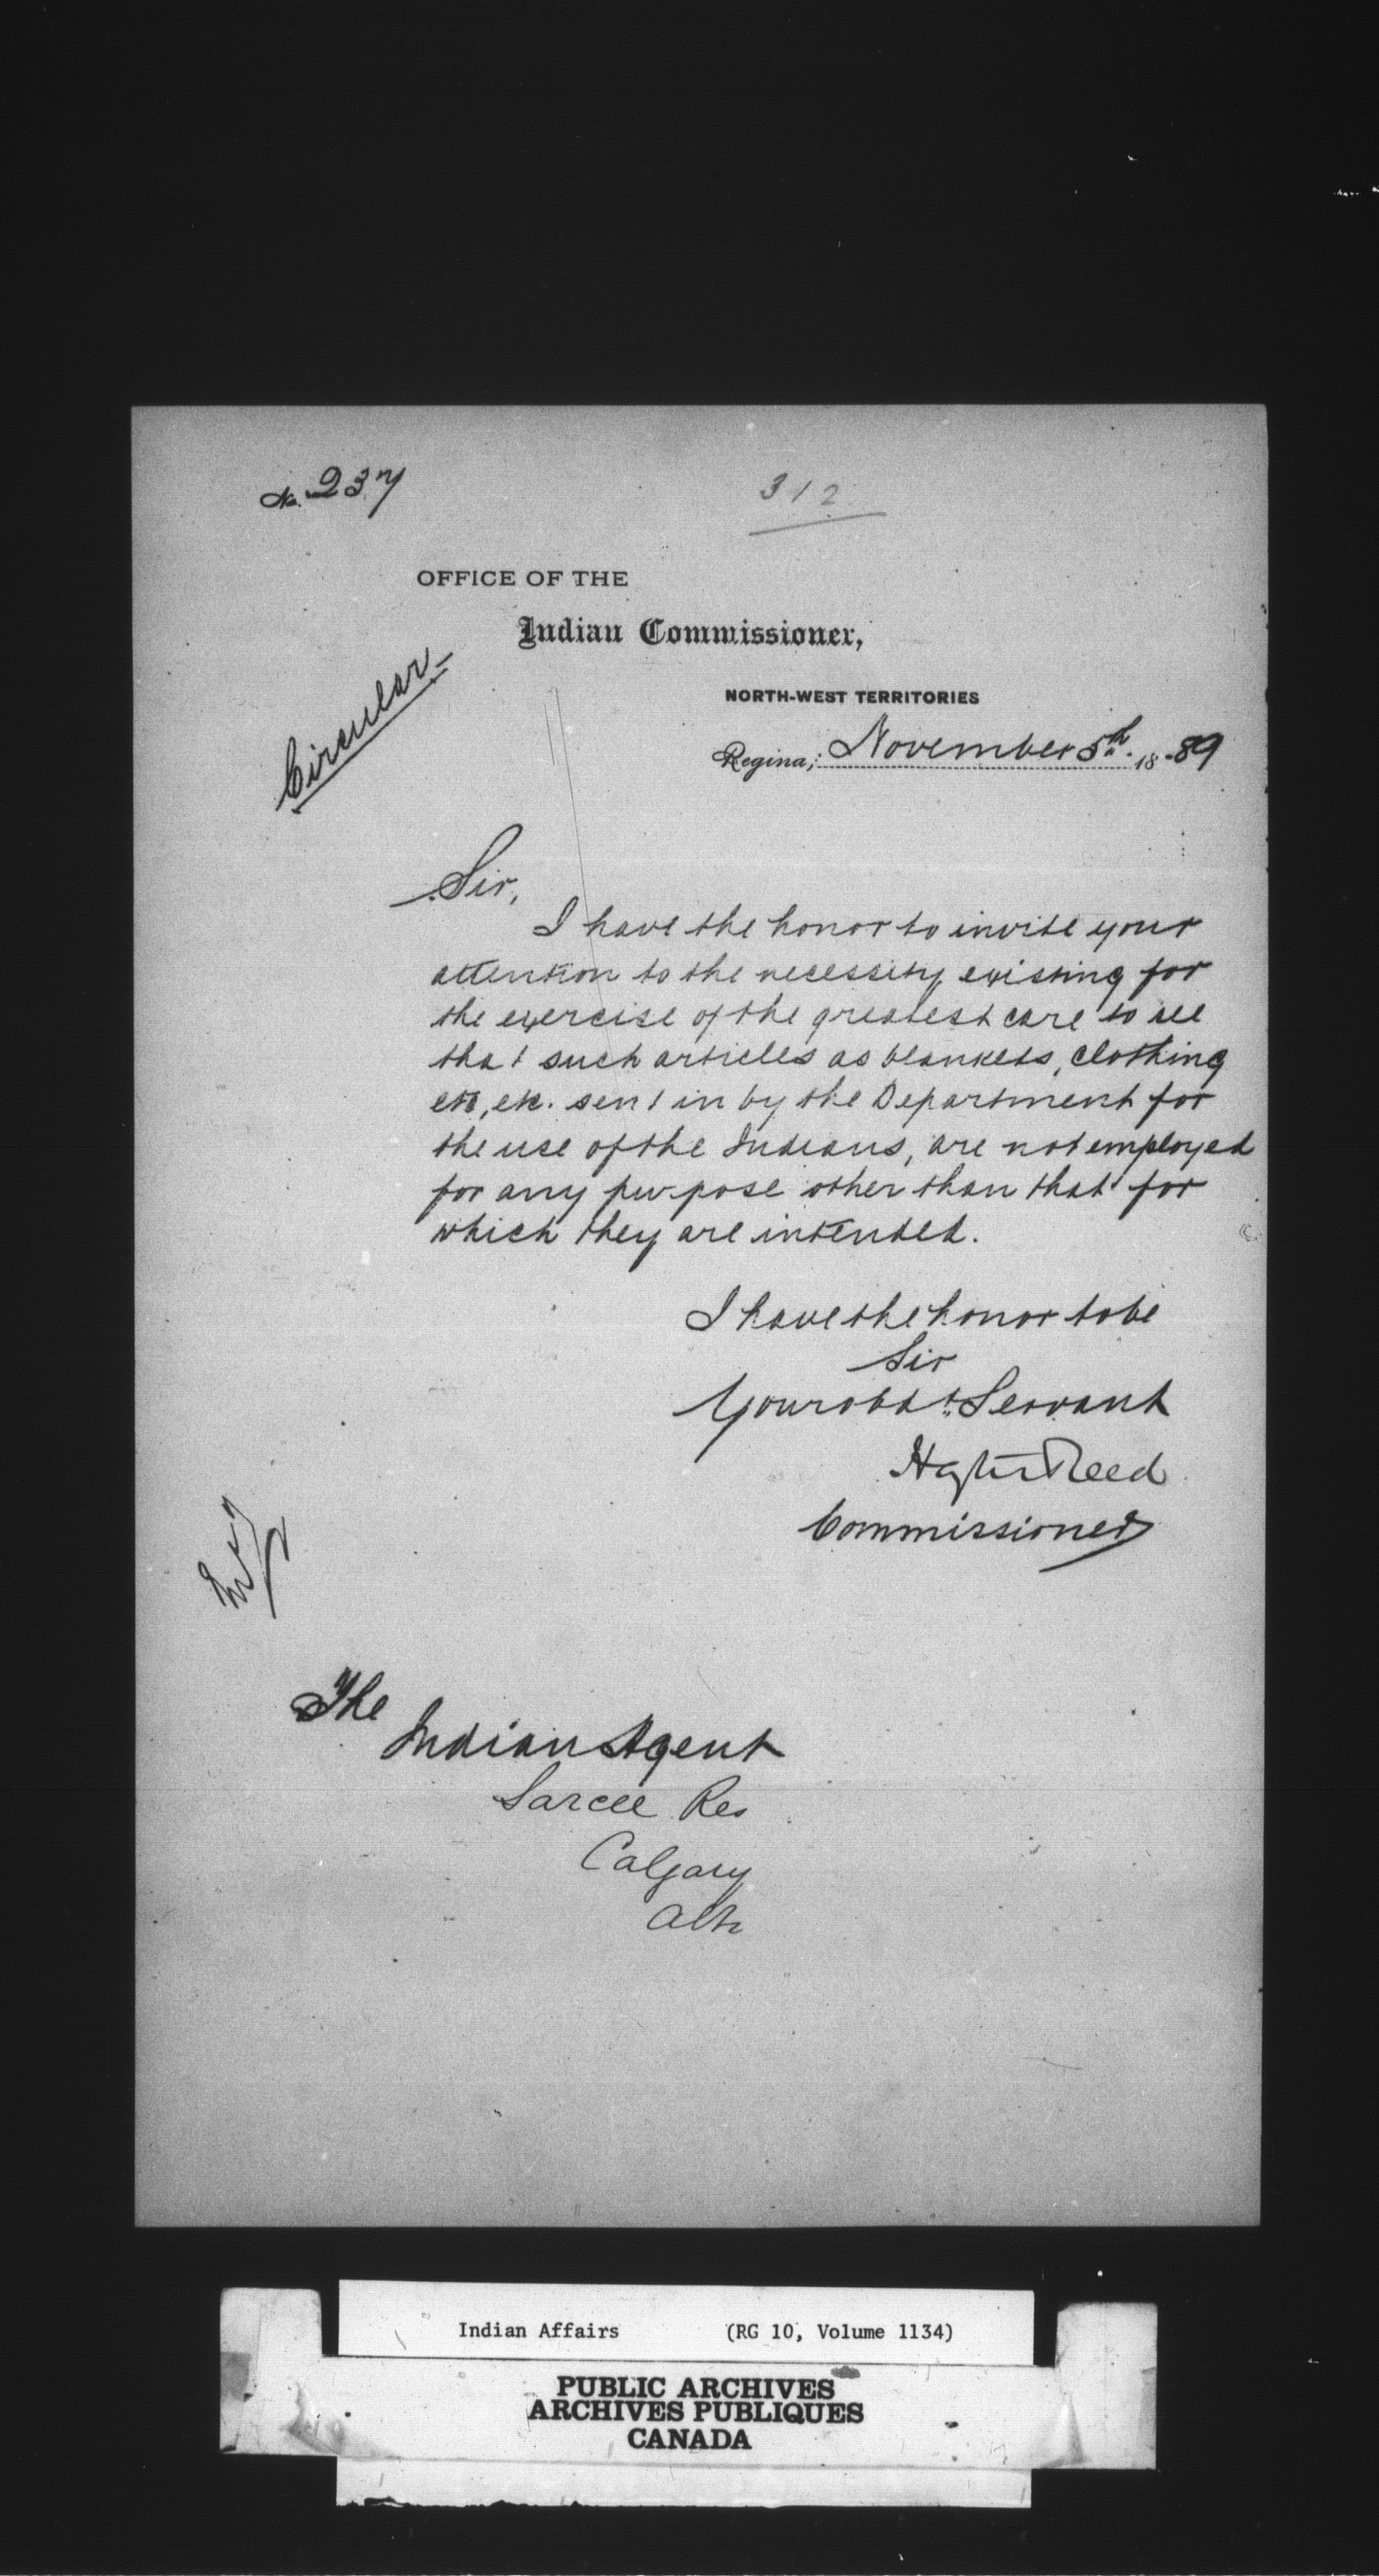 No. 237
312
OFFICE OF THE
Indian Commissioner,
Circular
NORTH-WEST TERRITORIES
Regina, November 5th. 18-89
Sir,
I have the honor to invite your
attention to the necessity existing for
the exercise of the greatest care to see
that such articles as blankets, clothing
etc, etc. sent in by the Department for
the use of the Indians, are not employed
for any purpose other than that for
which they are intended.
I have the honor to be
Sir
Your obdt. Servant
Hayter Reed
Commissioner
The
Indian Agent
Sarcee Res
Calgary
Alta
Indian Affairs (RG 10, Volume 1134)
PUBLIC ARCHIVES
ARCHIVES PUBLIQUES
CANADA